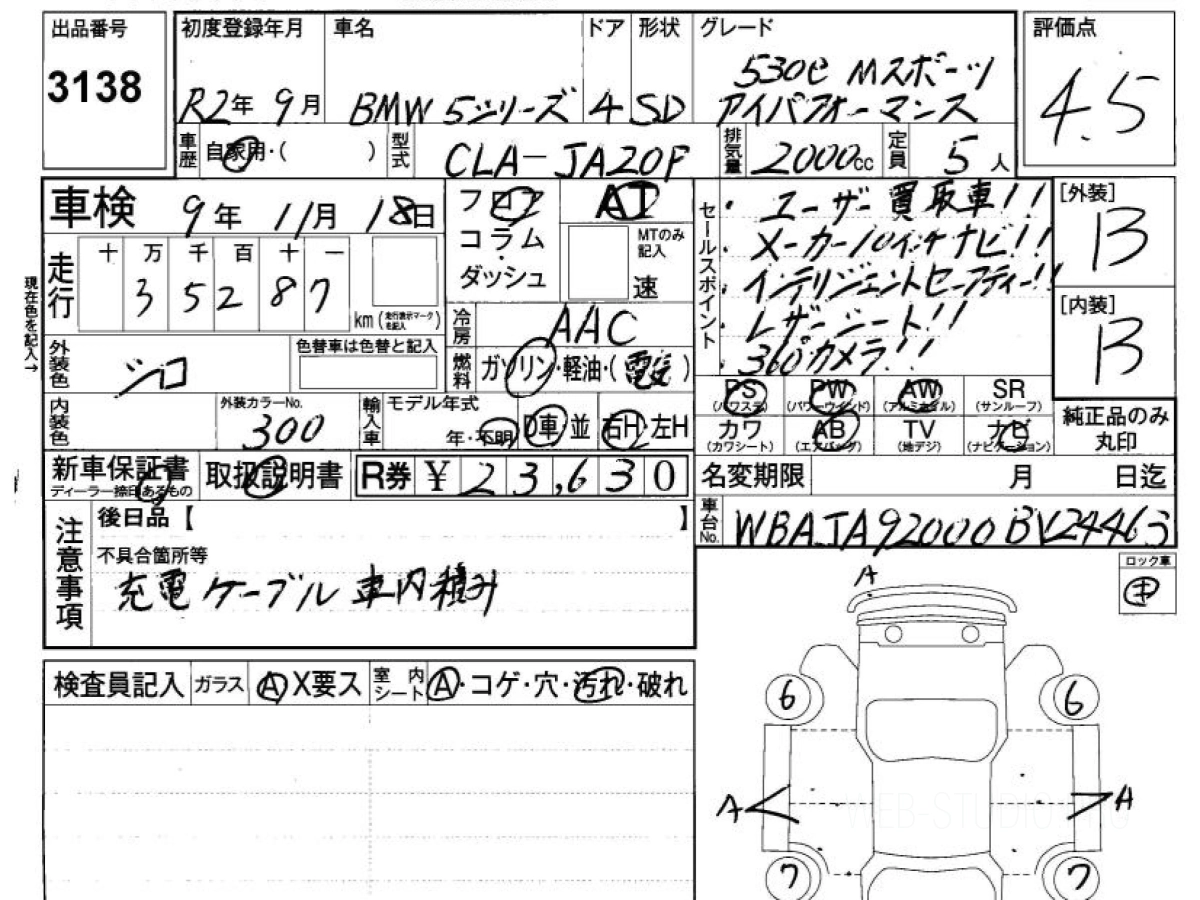 出品番号 初度登録年月 車名 ドア 形状 グレード 評価点
3138 R2年 9月 BMW 5シリーズ 4 SD 530e Mスポーツ
アイパフォーマンス 4.5
車歴 自家用・( ) 型式 CLA-JA20P 排気量 2000cc 定員 5人
車検 9年 11月 18日
フロア
コラム
・
ダッシュ
AT
MTのみ記入
速
セールスポイント
・ユーザー買取車!!
・メーカー10インチナビ!!
・インテリジェントセーフティー!!
・レザーシート!!
・360°カメラ!!
[外装]
B
[内装]
B
現在色を記入→
走行 十 万 千 百 十 一
3 5 2 8 7 km (走行表示マークを記入)
冷房 AAC
外装色 シロ 色替車は色替と記入
燃料 ガソリン・軽油・(電気)
内装色 外装カラーNo. 300 輸入車 モデル年式 年・不明 D車 並 右H・左H
PS (パワステ) PW (パワーウインド) AW (アルミホイル) SR (サンルーフ)
カワ (カワシート) AB (エアバッグ) TV (地デジ) ナビ (ナビゲーション)
純正品のみ
丸印
新車保証書 ディーラー捺印あるもの 取扱説明書 R券 ¥ 23,630
名変期限 月 日迄
車台No. WBAJA92000BV24463
注意事項
後日品【 】
不具合箇所等
充電ケーブル車内積み
ロック車
キ
検査員記入 ガラス A X要ス 室内シート A・コゲ・穴・汚れ・破れ
A
6 6
A A
WEB-STUDIO
7 7